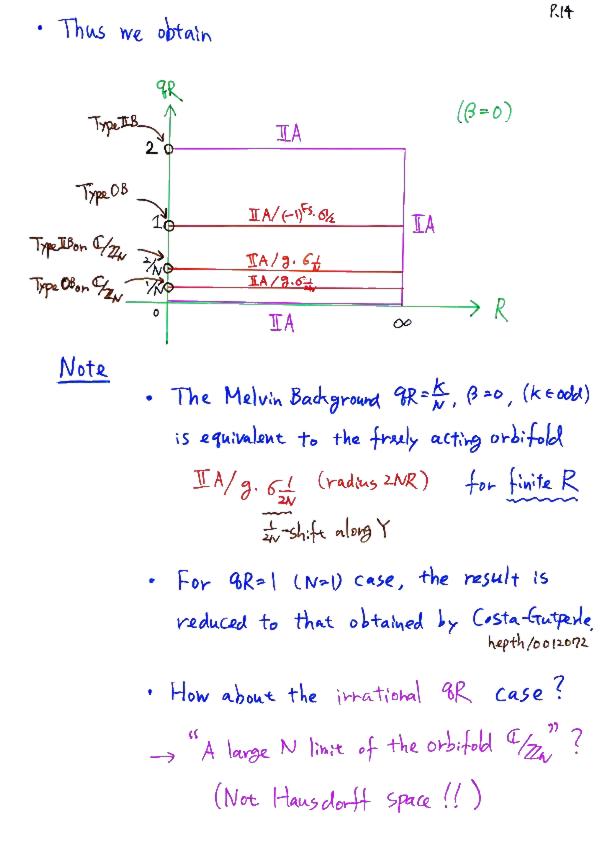 P.14
• Thus we obtain
qR
(β=0)
Type IIB
IIA
2
Type 0B
1
IIA/(-1)^{Fs}·σ_{1/2}
IIA
Type IIB on ℂ/ℤ_N
2/N
IIA/g·σ_{1/N}
Type 0B on ℂ/ℤ_N
1/N
IIA/g·σ_{1/2N}
0
IIA
∞
R
Note
• The Melvin Background qR=k/N, β=0, (k∈odd)
is equivalent to the freely acting orbifold
IIA/g·σ_{1/2N} (radius 2NR) for finite R
1/2N-shift along Y
• For qR=1 (N=1) case, the result is
reduced to that obtained by Costa-Gutperle,
hepth/0012072
• How about the irrational qR case?
→ "A large N limit of the orbifold ℂ/ℤ_N"?
(Not Hausdorff space!!)